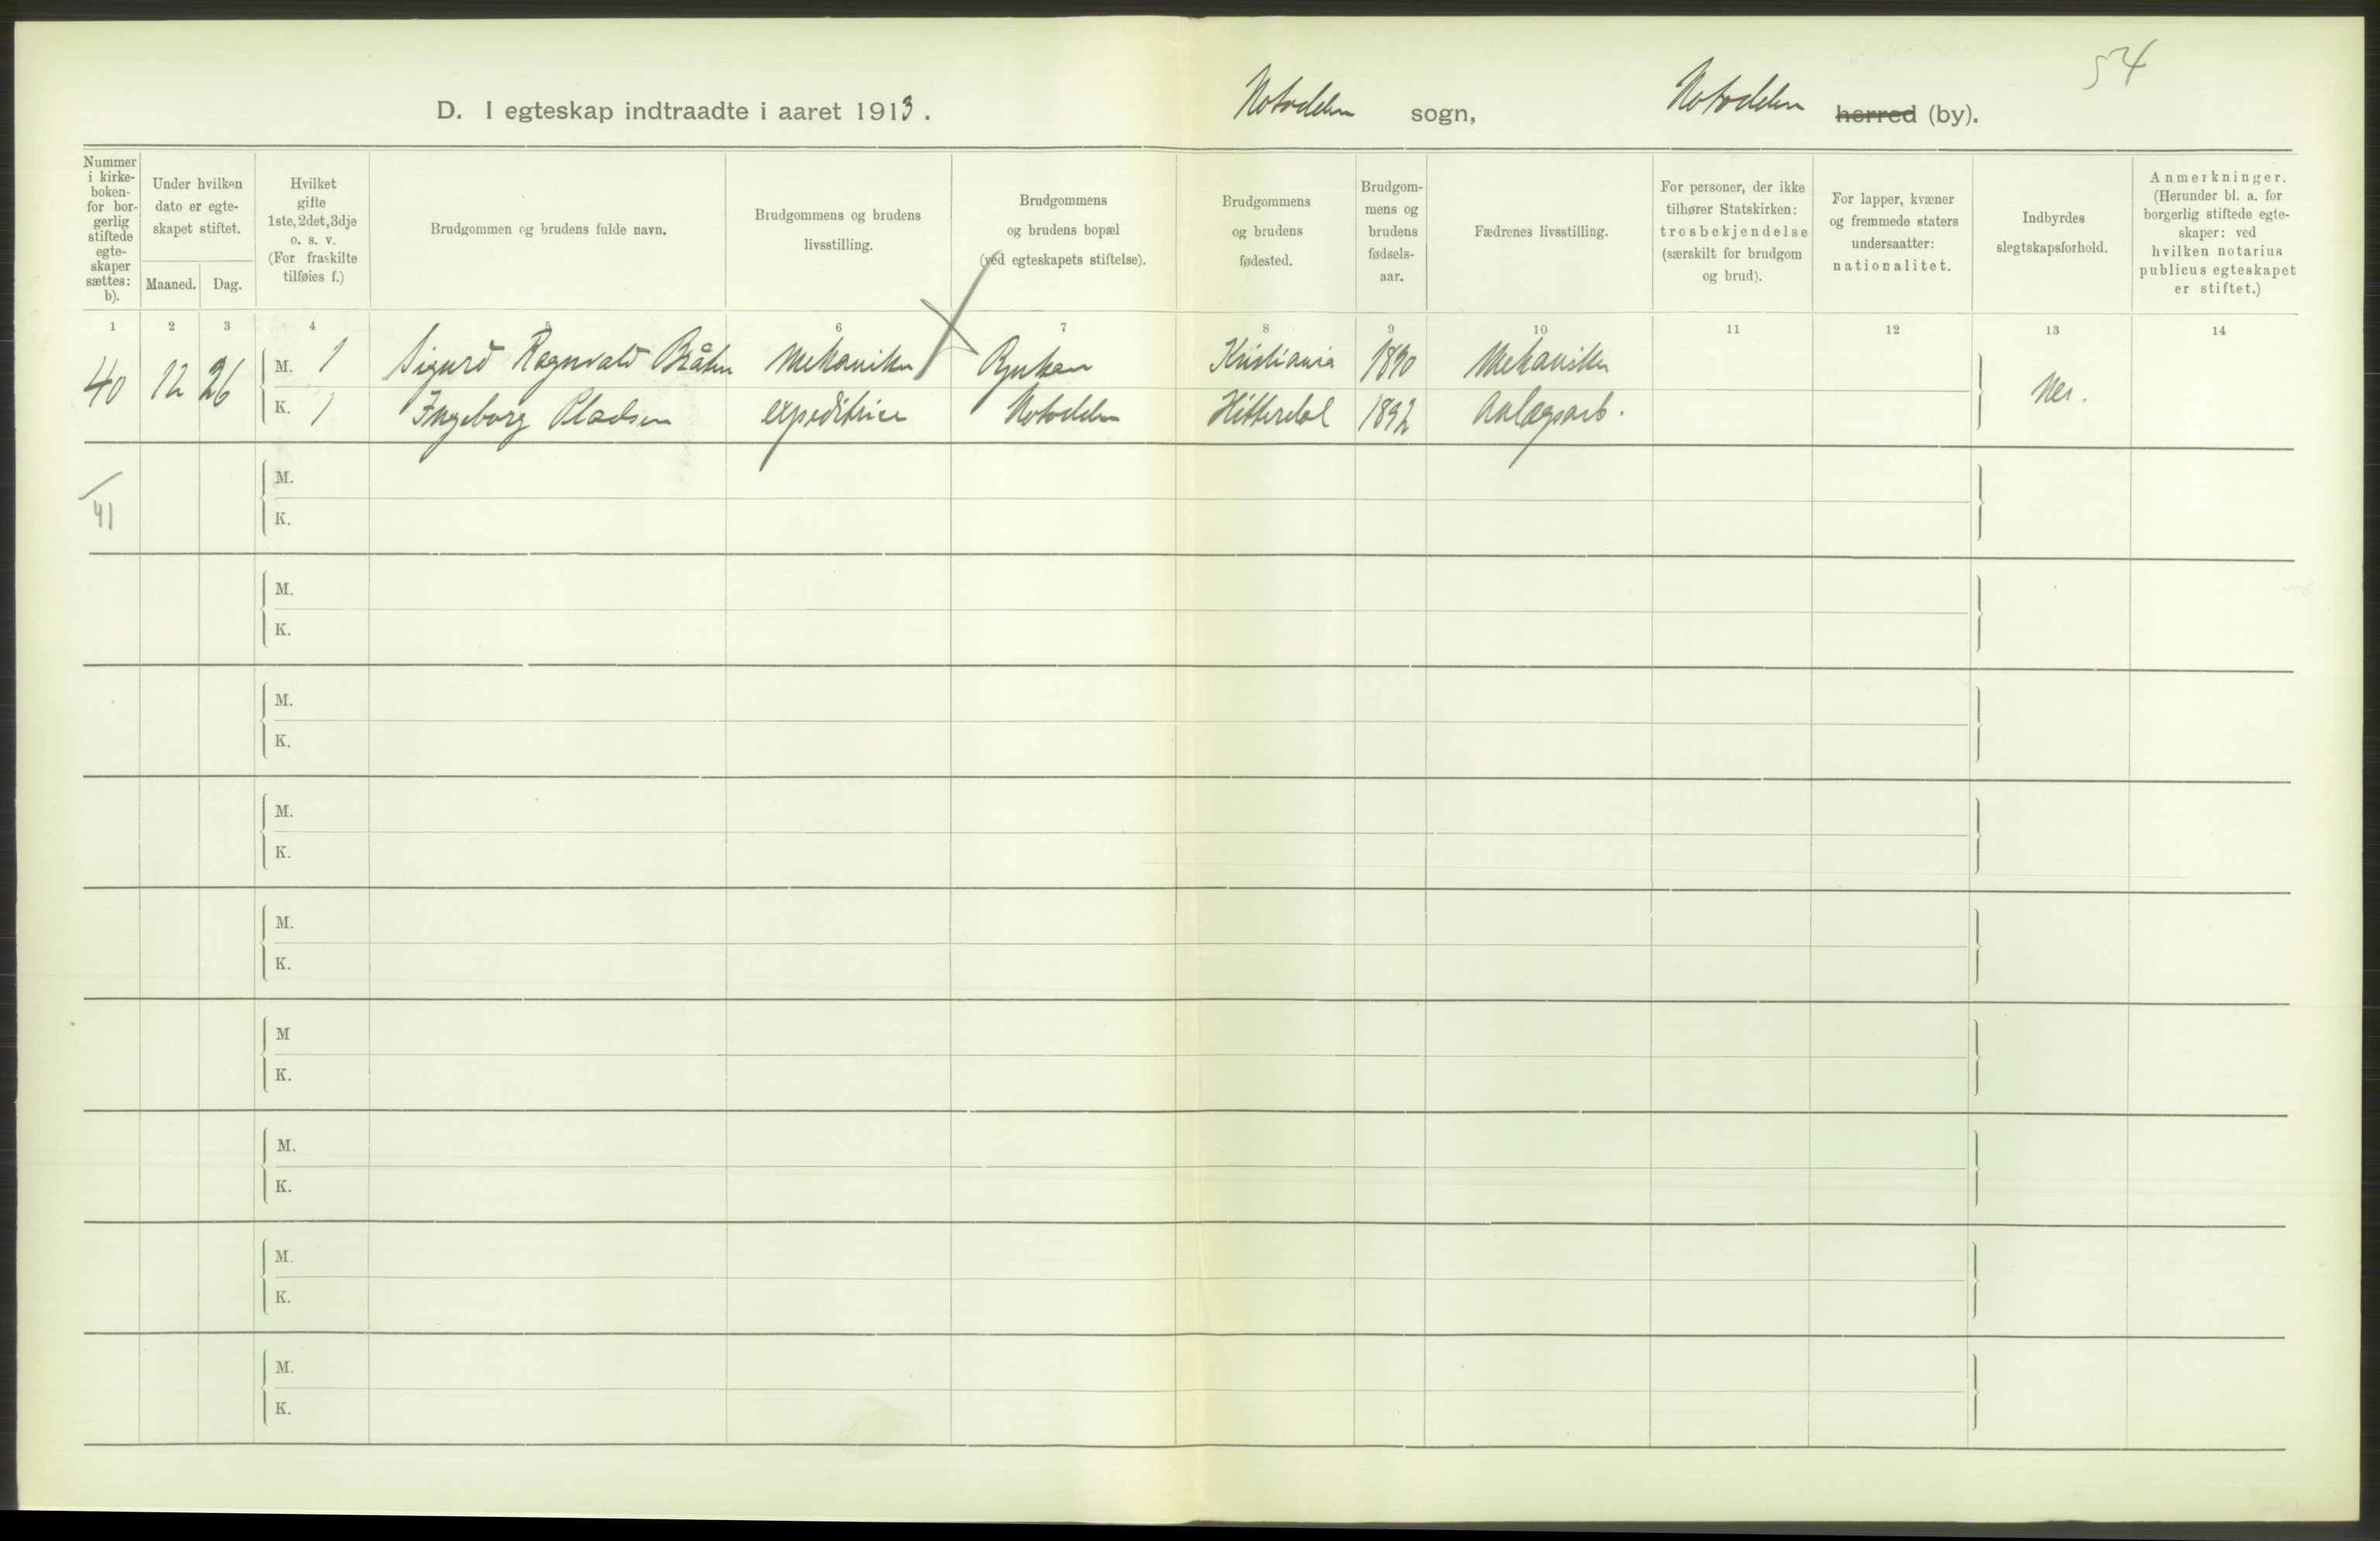 54
D. I egteskap indtraadte i aaret 1913. Notodden sogn, Notodden herred (by).
Nummer i kirkeboken- for borgerlig stiftede egteskaper sættes: b).
Under hvilken dato er egteskapet stiftet.
Maaned. Dag.
Hvilket gifte 1ste, 2det, 3dje o. s. v. (For fraskilte tilføies f.)
Brudgommen og brudens fulde navn.
Brudgommens og brudens livsstilling.
Brudgommens og brudens bopæl (ved egteskapets stiftelse).
Brudgommens og brudens fødested.
Brudgommens og brudens fødselsaar.
Fædrenes livsstilling.
For personer, der ikke tilhører Statskirken: trosbekjendelse (særskilt for brudgom og brud).
For lapper, kvæner og fremmede staters undersaatter: nationalitet.
Indbyrdes slegtskapsforhold.
Anmerkninger. (Herunder bl. a. for borgerlig stiftede egteskaper: ved hvilken notarius publicus egteskapet er stiftet.)
1 2 3 4 5 6 7 8 9 10 11 12 13 14
40 12 26 M. 1 Sigurd Ragnvald Bråten Mekaniker Rjukan Kristiania 1890 Mekaniker Nei.
K. 1 Ingeborg Pladsen expeditrice Notodden Hitterdal 1892 Anlægsarb.
41 M.
K.
M.
K.
M.
K.
M.
K.
M.
K.
M
K.
M.
K.
M.
K.
M.
K.